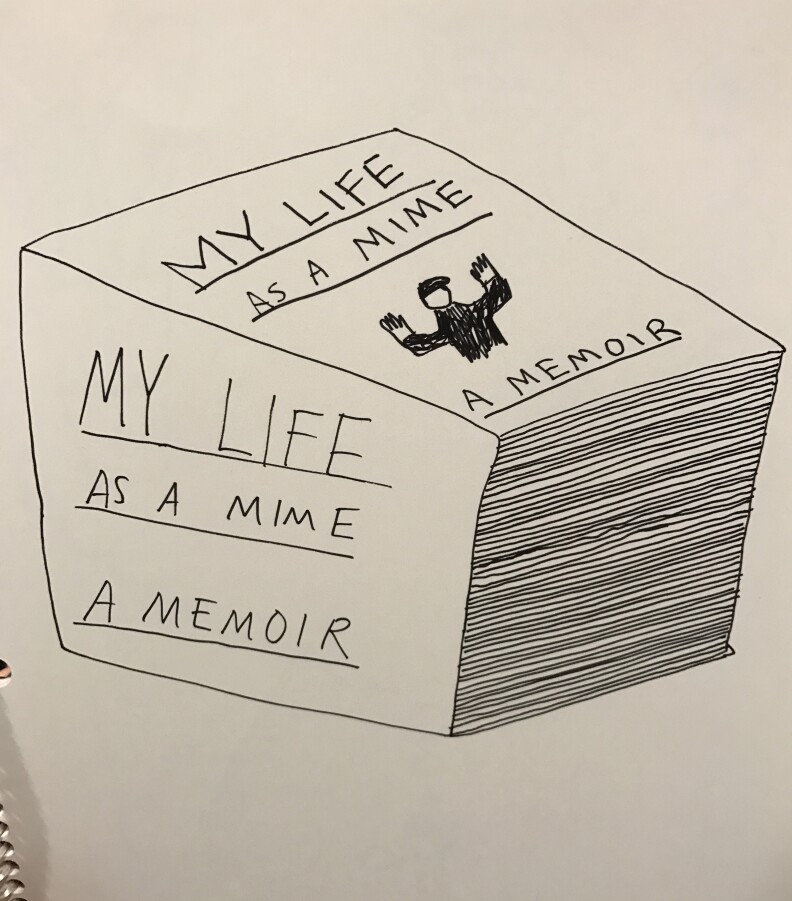 MY LIFE
AS A MIME
A MEMOIR
MY LIFE
AS A MIME
A MEMOIR